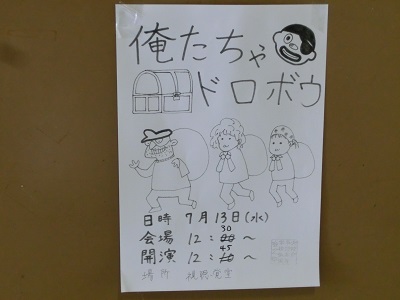 俺たちゃ
ドロボウ
日時 7月13日(水)
会場 12:30～
開演 12:45～
場所 視聴覚室